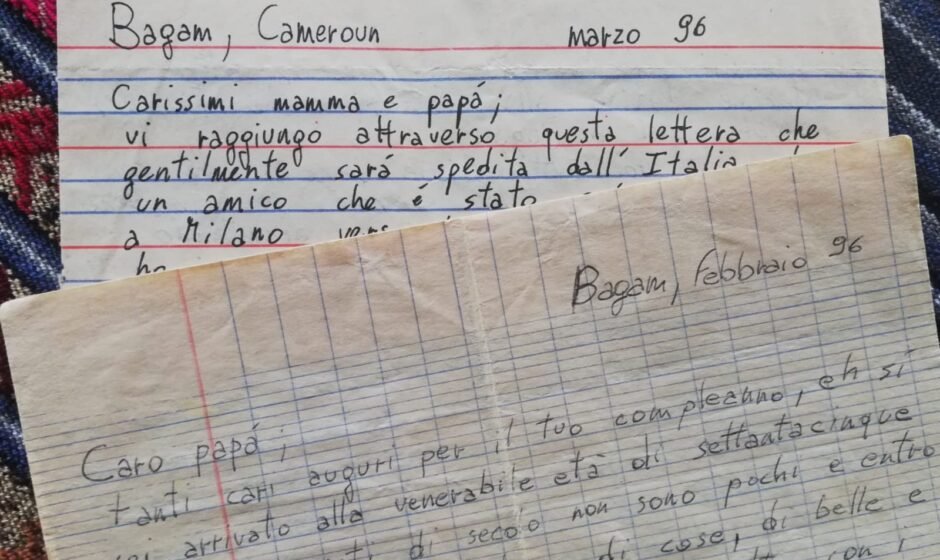 Bagam, Cameroun marzo 96
Carissimi mamma e papá;
vi raggiungo attraverso questa lettera che
gentilmente sará spedita dall' Italia
un amico che é stato
a Milano
Bagam, febbraio 96
Caro papá;
tanti cari auguri per il tuo compleanno, eh sí
arrivato alla venerabile etá di settantacinque
di secolo non sono pochi e entro
di cose, di belle e
con i